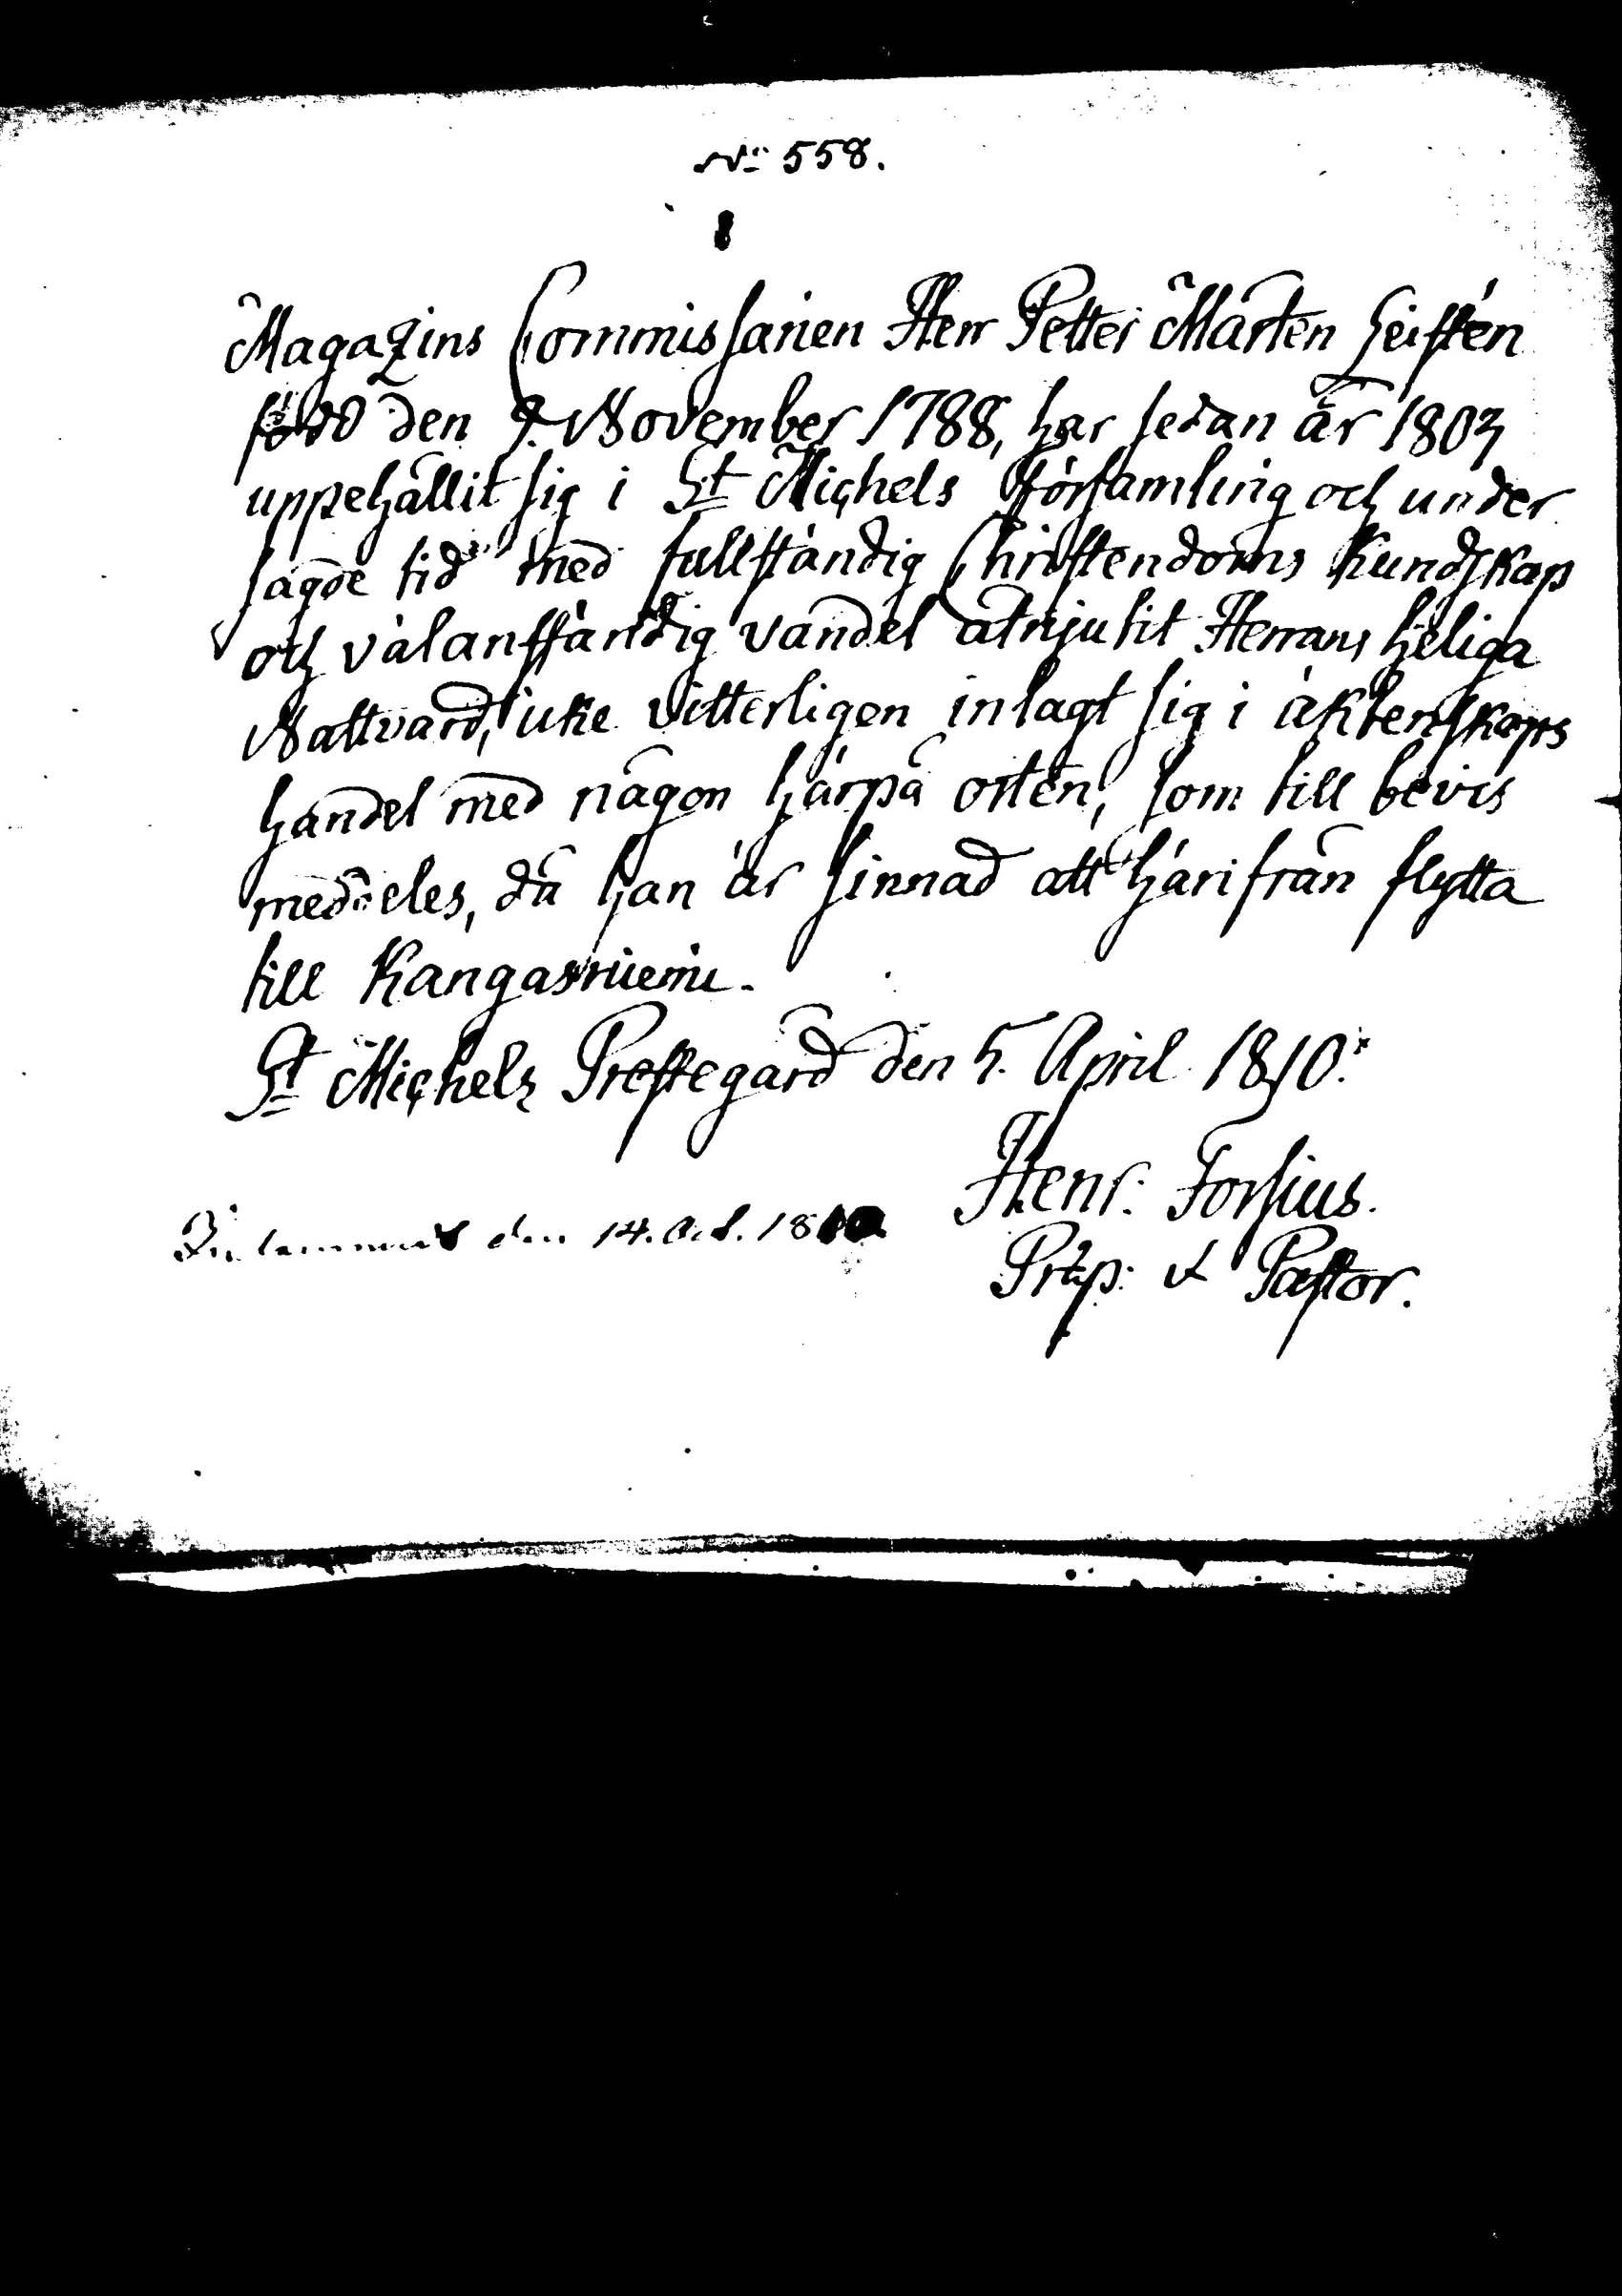 No 558.
Magazins Commissarien Herr Petter Mårten Heistén
född den 9. November 1788, har sedan år 1803
uppehållit sig i St Michels församling och under
sagde tid med fullständig Christendoms Kundskap
och välanständig vandel åtnjutit Herrans heliga
Nattvard, icke vitterligen inlagt sig i äktenskaps
handel med någon härpå orten, som till bevis
meddeles, då han är sinnad att härifrån flytta
till Kangasniemi.
St Michels Prestegård den 5. April 1810.
Henr. Forsius.
Præp: & Pastor.
Inlemnat den 14. Oct. 1810